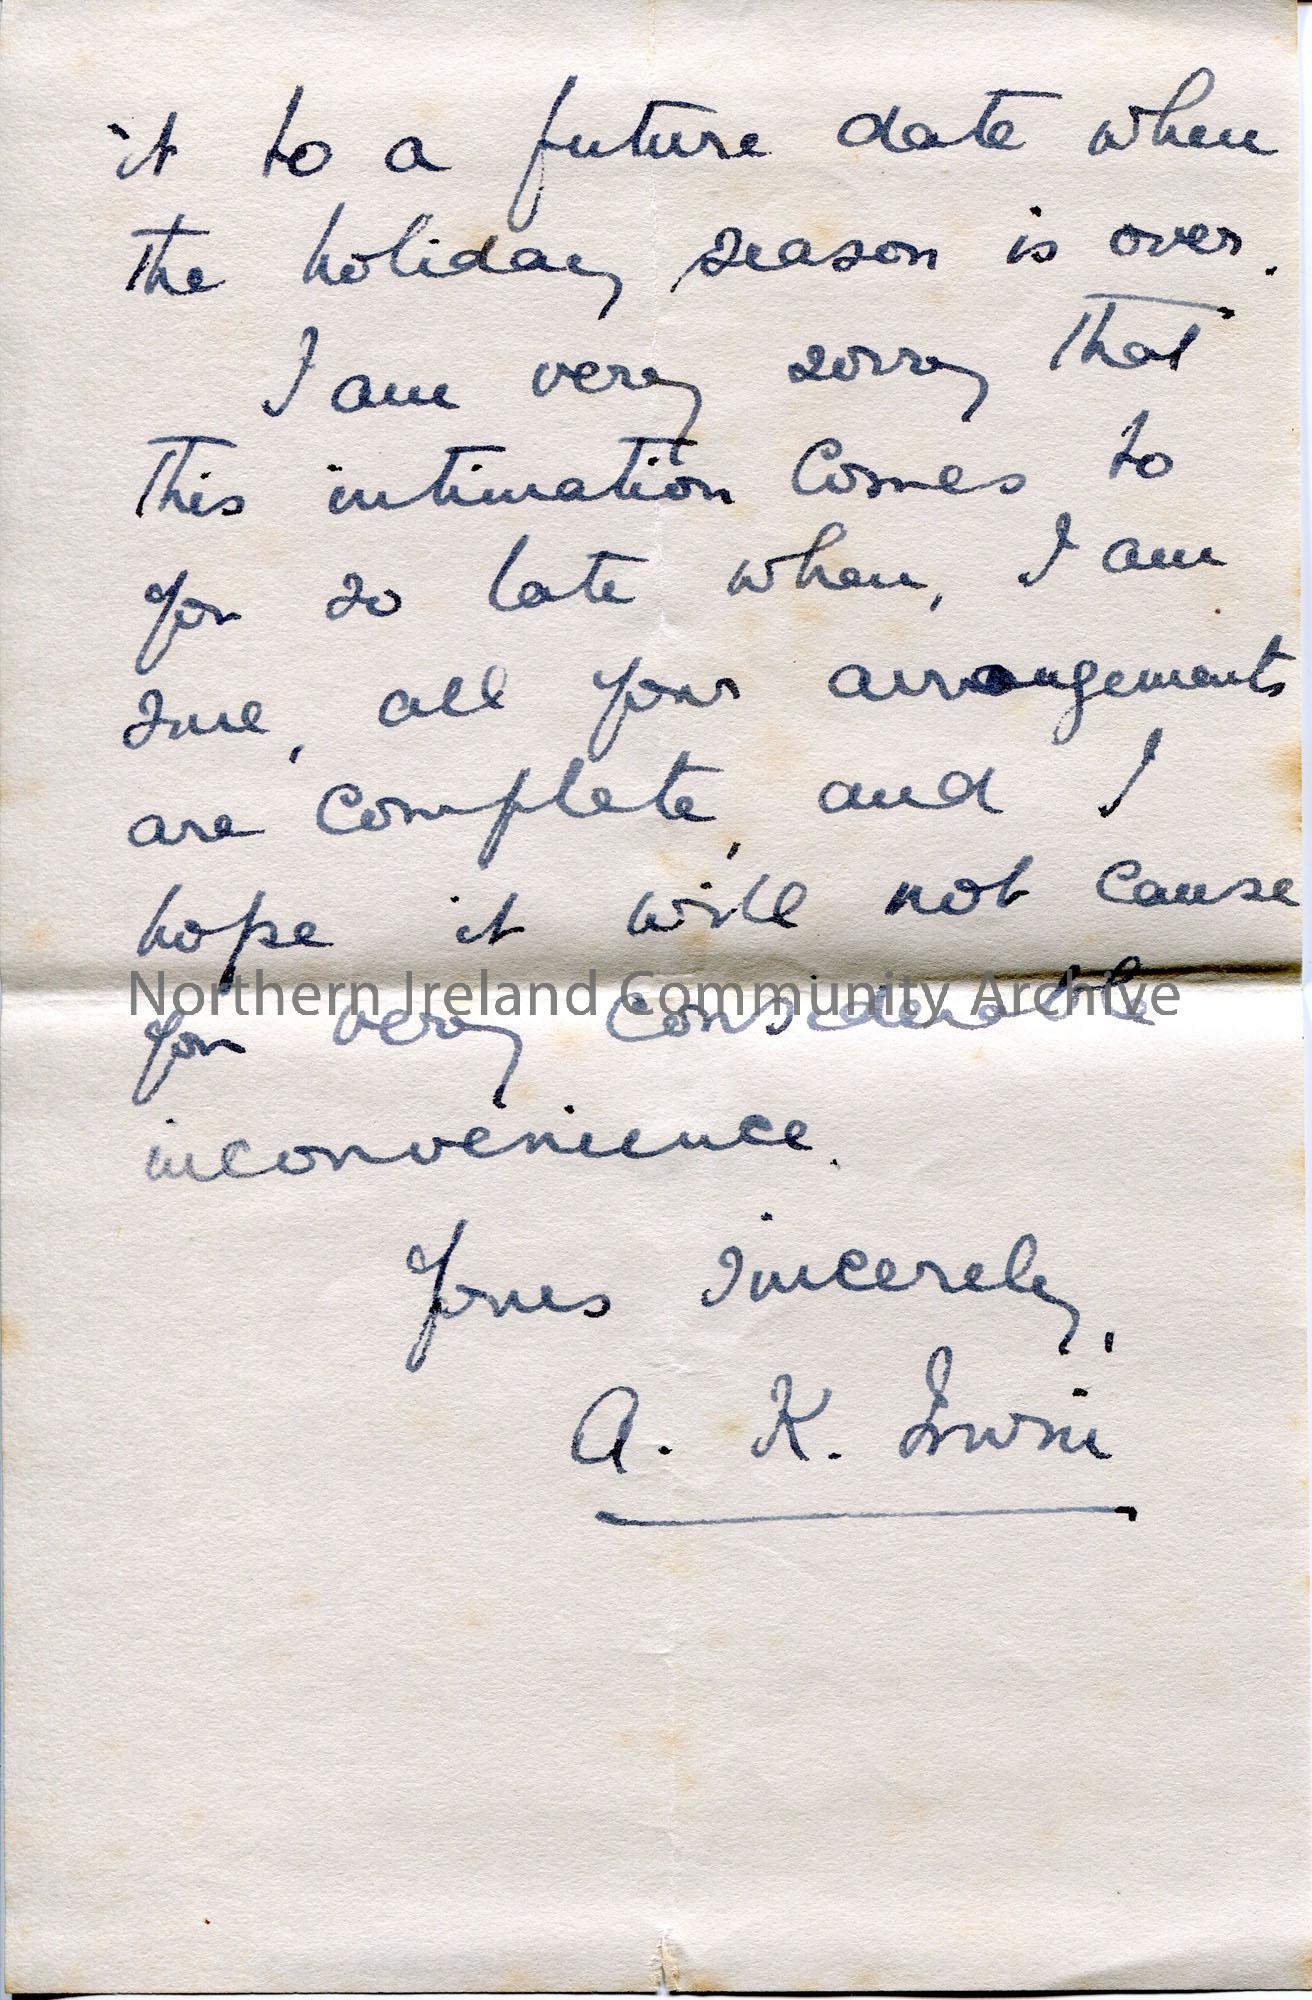 it to a future date when
the holiday season is over.
I am very sorry that
this intimation comes to
you so late when, I am
sure, all your arrangements
are complete, and I
hope it will not cause
Northern Ireland Community Archive
you very considerable
inconvenience.
Yours sincerely,
A. K. Irwin